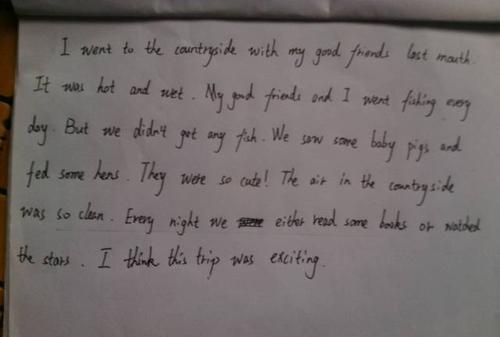 I went to the countryside with my good friends last mouth.
It was hot and wet. My good friends and I went fishing every
day. But we didn't get any fish. We saw some baby pigs and
fed some hens. They were so cute! The air in the countryside
was so clean. Every night we either read some books or watched
the stars. I think this trip was exciting.